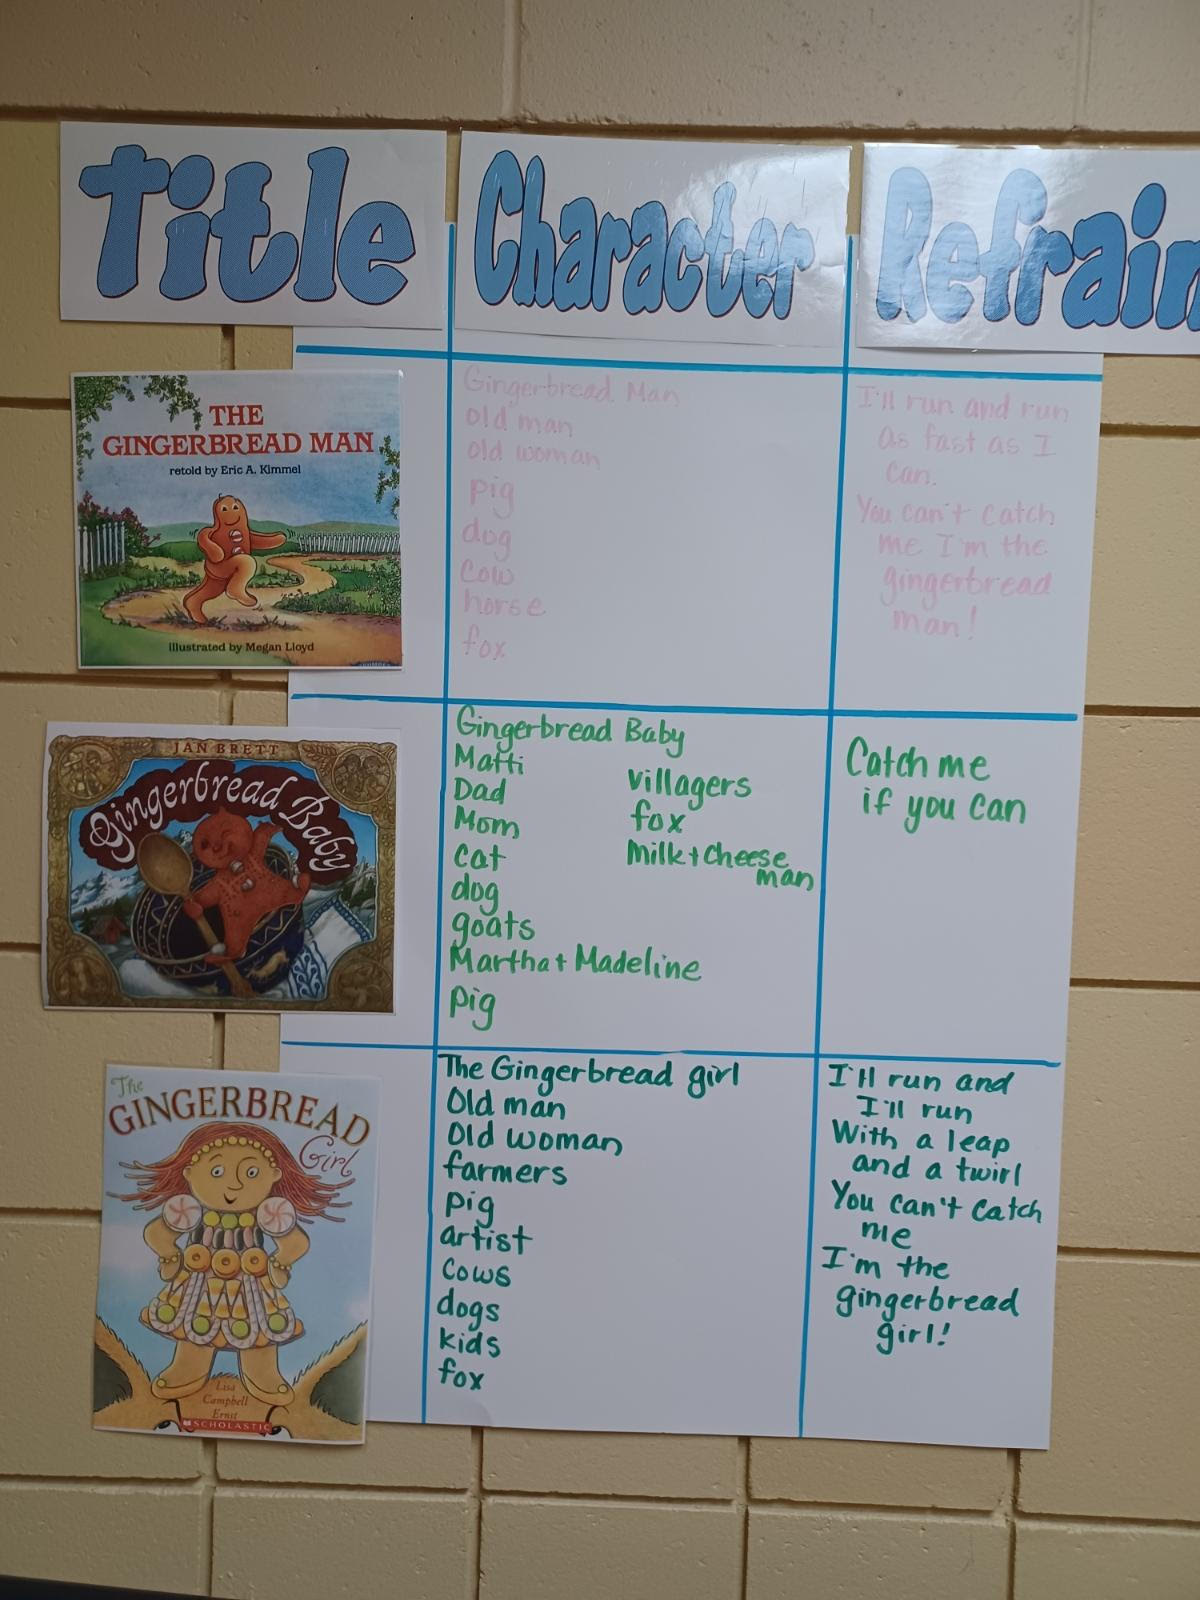 Title
Character
Refrain
THE
GINGERBREAD MAN
retold by Eric A. Kimmel
illustrated by Megan Lloyd
Gingerbread Man
old man
old woman
pig
dog
cow
horse
fox
I'll run and run
as fast as I
can.
You can't catch
me I'm the
gingerbread
man!
JAN BRETT
Gingerbread Baby
Gingerbread Baby
Matti
Dad
Mom
cat
dog
goats
Martha + Madeline
pig
villagers
fox
Milk + Cheese
man
Catch me
if you can
The
GINGERBREAD
Girl
Lisa
Campbell
Ernst
SCHOLASTIC
The Gingerbread girl
Old man
Old woman
farmers
pig
artist
cows
dogs
kids
fox
I'll run and
I'll run
With a leap
and a twirl
You can't catch
me
I'm the
gingerbread
girl!